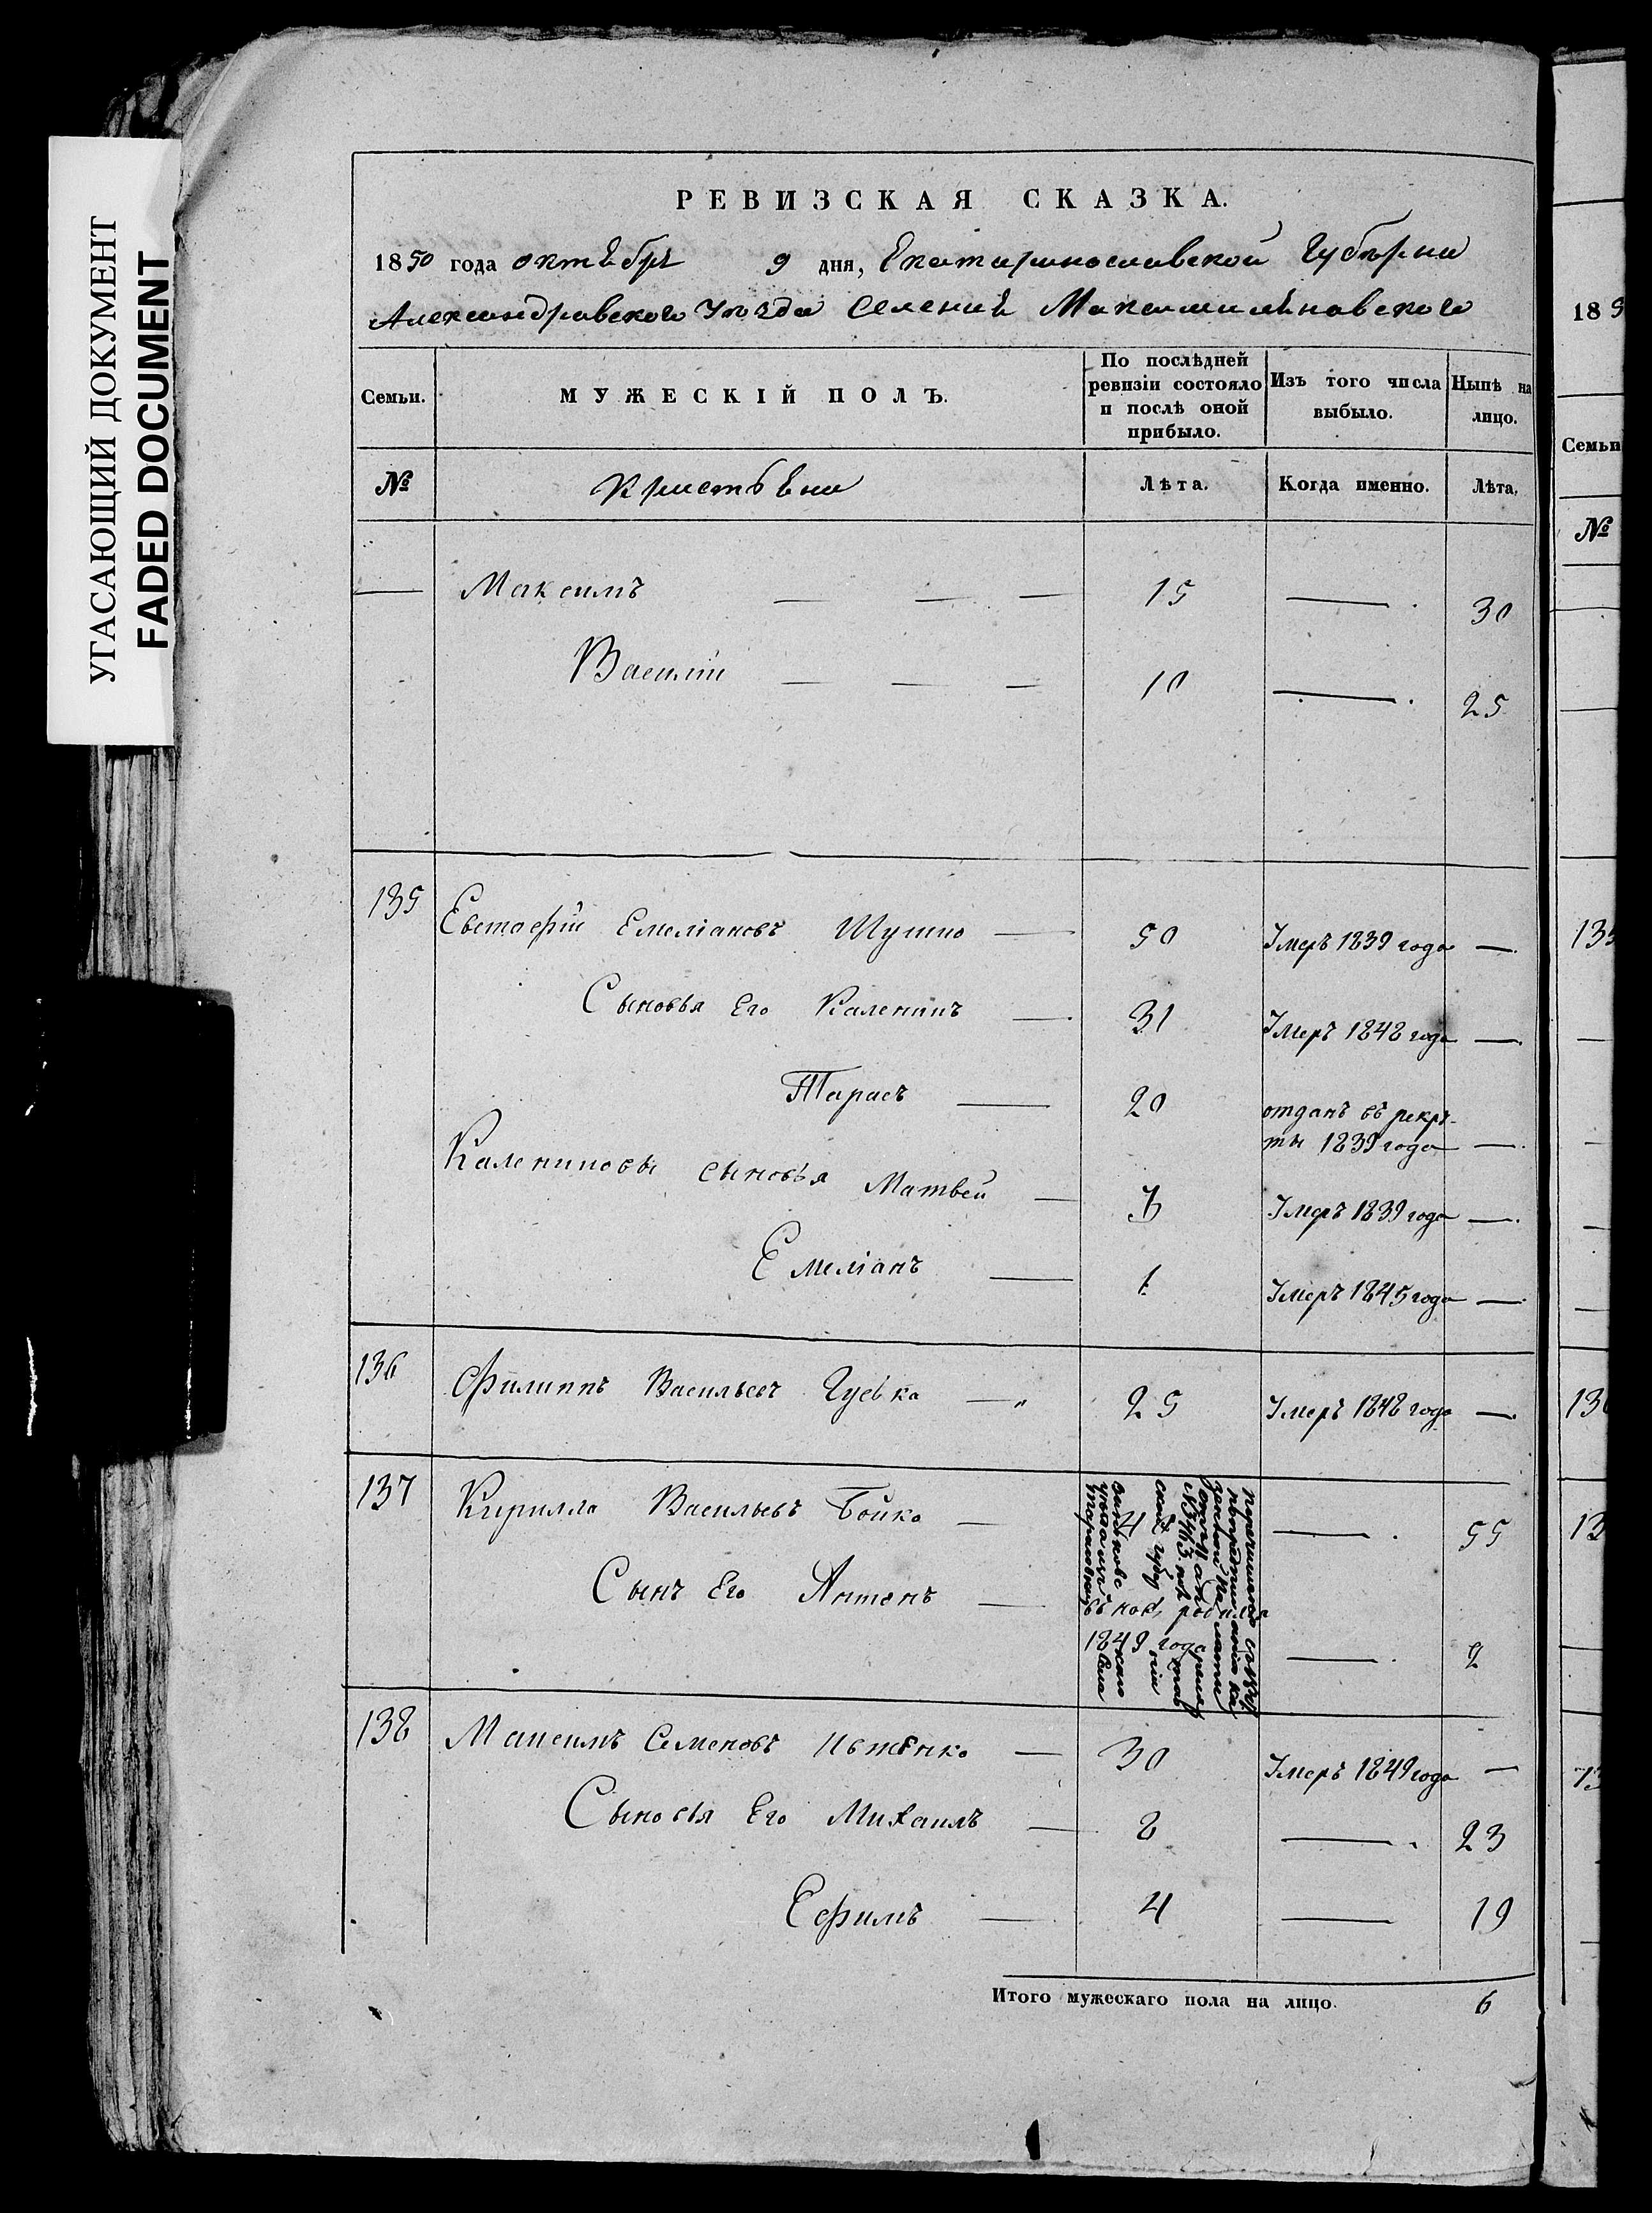 УГАСАЮЩИЙ ДОКУМЕНТ
FADED DOCUMENT
РЕВИЗСКАЯ СКАЗКА.
1850 года октября 9 дня, Екатеринославской Губѣрни
Александровского Уѣзда Селения Максимиляновского
Семьи. МУЖЕСКІЙ ПОЛЪ. По послѣдней ревизіи состояло и послѣ оной прибыло. Изъ того числа выбыло. Нынѣ на лицо.
№ Кристьяни Лѣта. Когда именно. Лѣта.
— Максимъ — — — 15 —. 30
Василій — — — 10 —. 25
135 Евстафій Емеліановъ Шушно — 50 Умеръ 1839 года —.
Сыновья Его Каленикъ — 31 Умеръ 1848 года —.
Тарасъ — 20 отданъ въ рекру-
ты 1839 года —.
Калениковы сыновья Матвей — Умеръ 1839 года —.
Емеліанъ — 1 Умеръ 1845 года —.
136 Филиппъ Васильевъ Гуевка — 25 Умеръ 1848 года —.
137 Кирилла Васильевъ Бойко — —. 55
Сынъ Его Антонъ — родился
1849 года —. 2
138 Максимъ Семеновъ — 30 Умеръ 1849 года —
Сыновья Его Михаилъ — 8 —. 23
Ефимъ — 4 — 19
Итого мужескаго пола на лицо. 6
185
Семьи
№
135
136
13
13